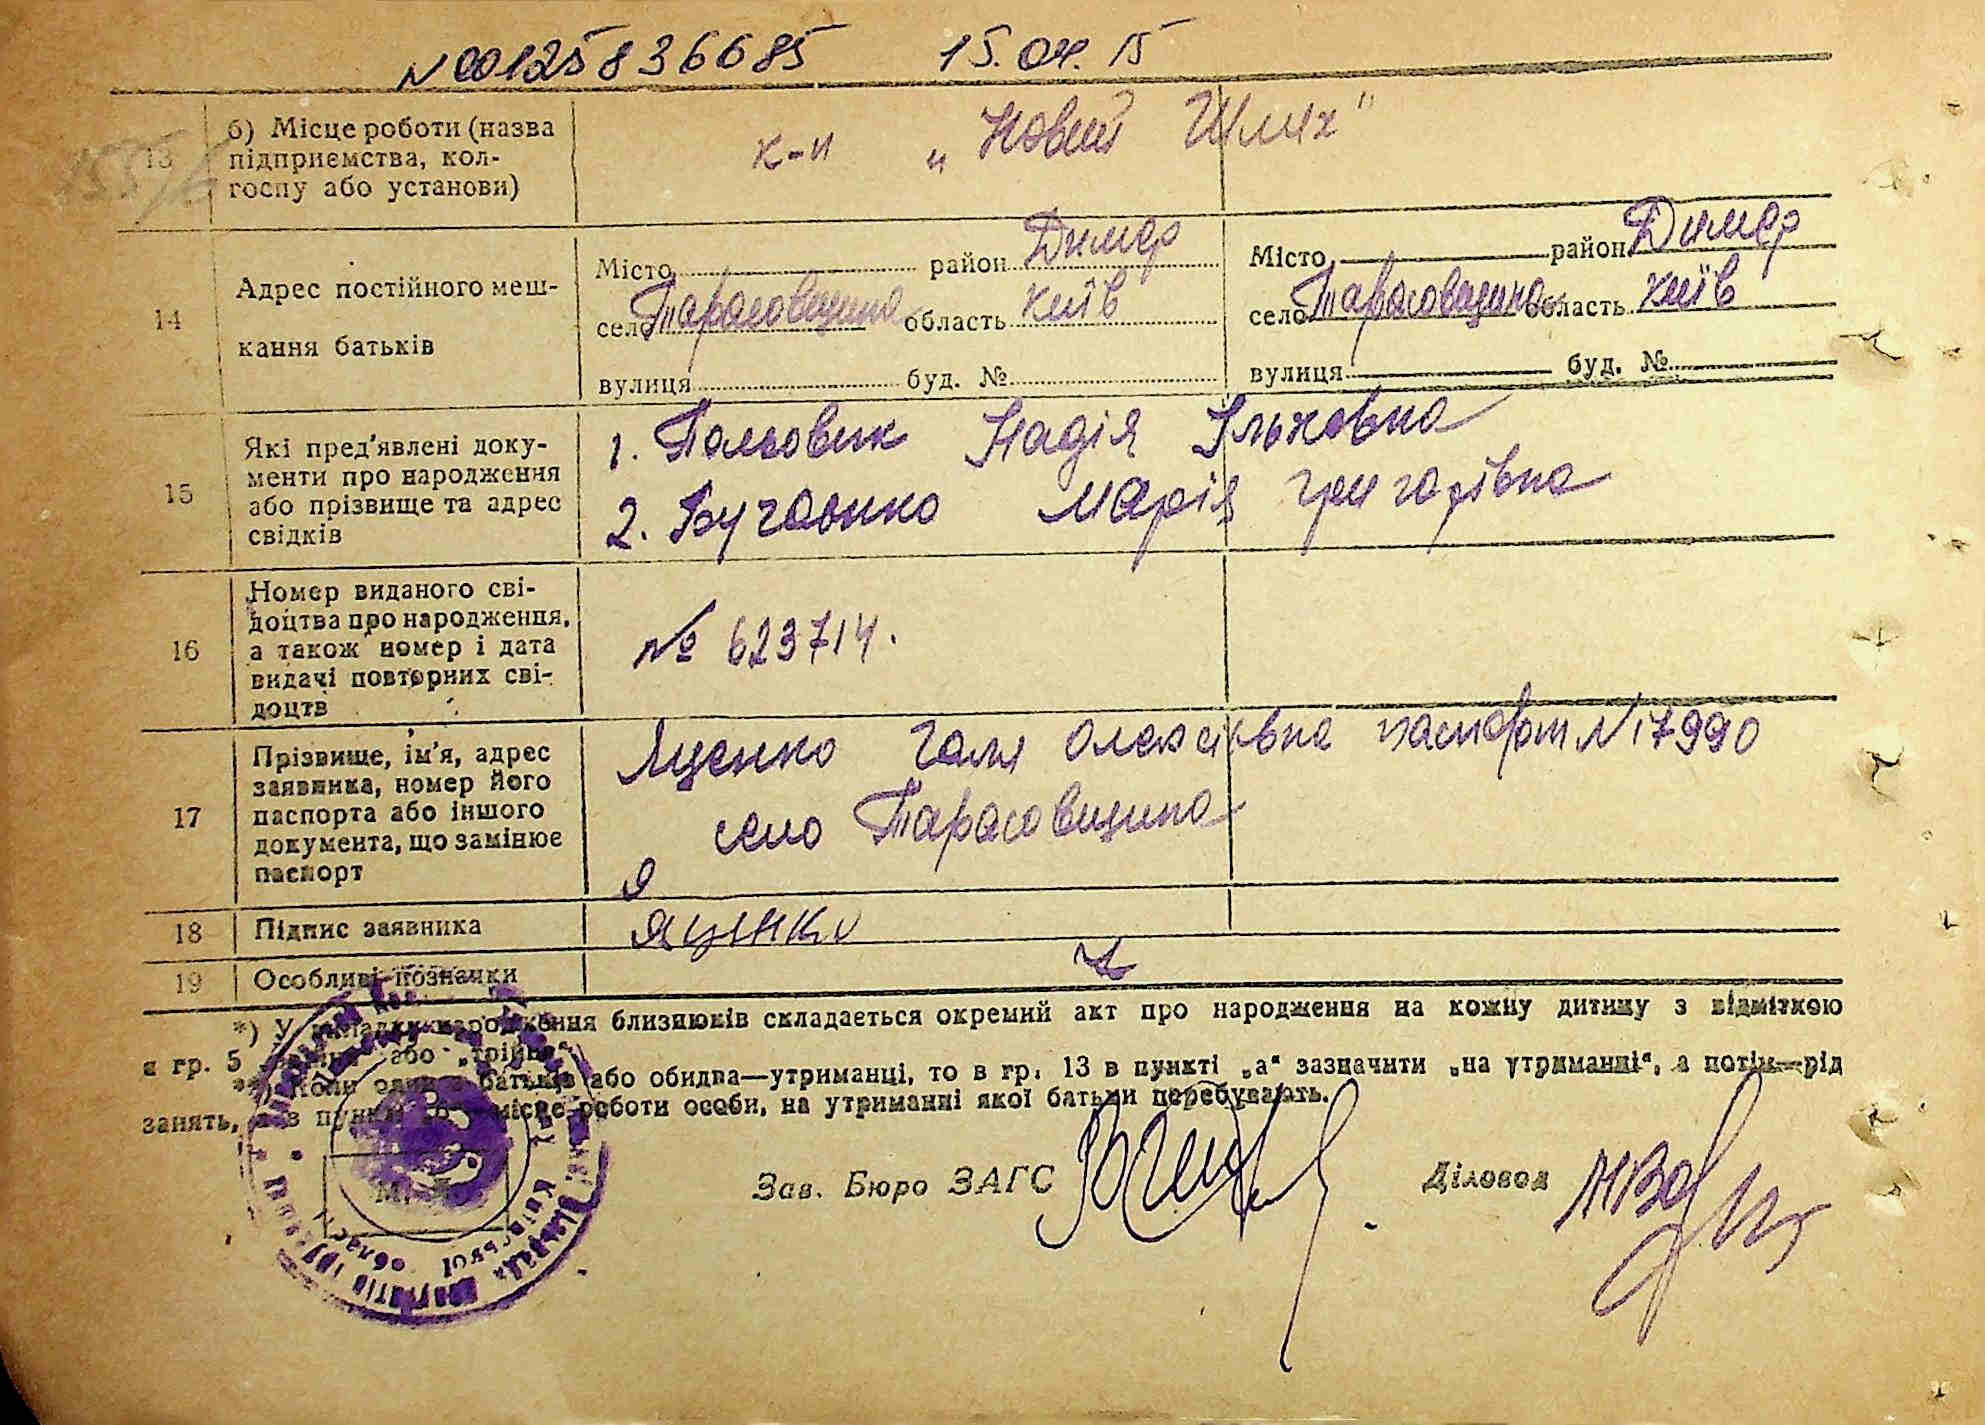 N00125836685 15.04.15
13 б) Місце роботи (назва
підприємства, кол-
госпу або установи)
к-п „Новий Шлях"
14 Адрес постійного меш-
кання батьків
Місто район Димер
село Тарасовщина область Київ
вулиця буд. №
Місто район Димер
село Тарасовщина область Київ
вулиця буд. №
15 Які пред'явлені доку-
менти про народження
або прізвище та адрес
свідків
1. Надія Ільковна
2. Марія Григорівна
16 Номер виданого сві-
доцтва про народження,
а також номер і дата
видачі повторних сві-
доцтв
№ 623714.
17 Прізвище, ім'я, адрес
заявника, номер його
паспорта або іншого
документа, що замінює
паспорт
Яценко Галя Олексіївна паспорт N 17990
село Тарасовщина
18 Підпис заявника
Яценко
19 Особливі позначки
*) У випадку народження близнюків складається окремий акт про народження на кожну дитину з відміткою
в гр. 5 „двійня" або „трійня"
**) Коли один з батьків або обидва—утриманці, то в гр. 13 в пункті „а" зазначити „на утриманні", а потім—рід
занять, а в пункті „б" місце роботи особи, на утриманні якої батьки перебувають.
М. П.
Київської області
Зав. Бюро ЗАГС
Діловод